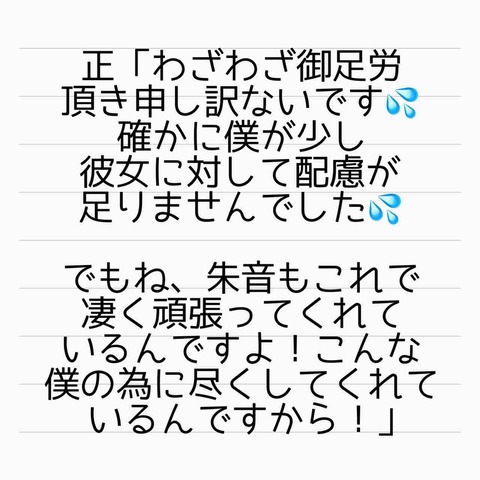 正「わざわざ御足労
頂き申し訳ないです💦
確かに僕が少し
彼女に対して配慮が
足りませんでした💦
でもね、朱音もこれで
凄く頑張ってくれて
いるんですよ！こんな
僕の為に尽くしてくれて
いるんですから！」